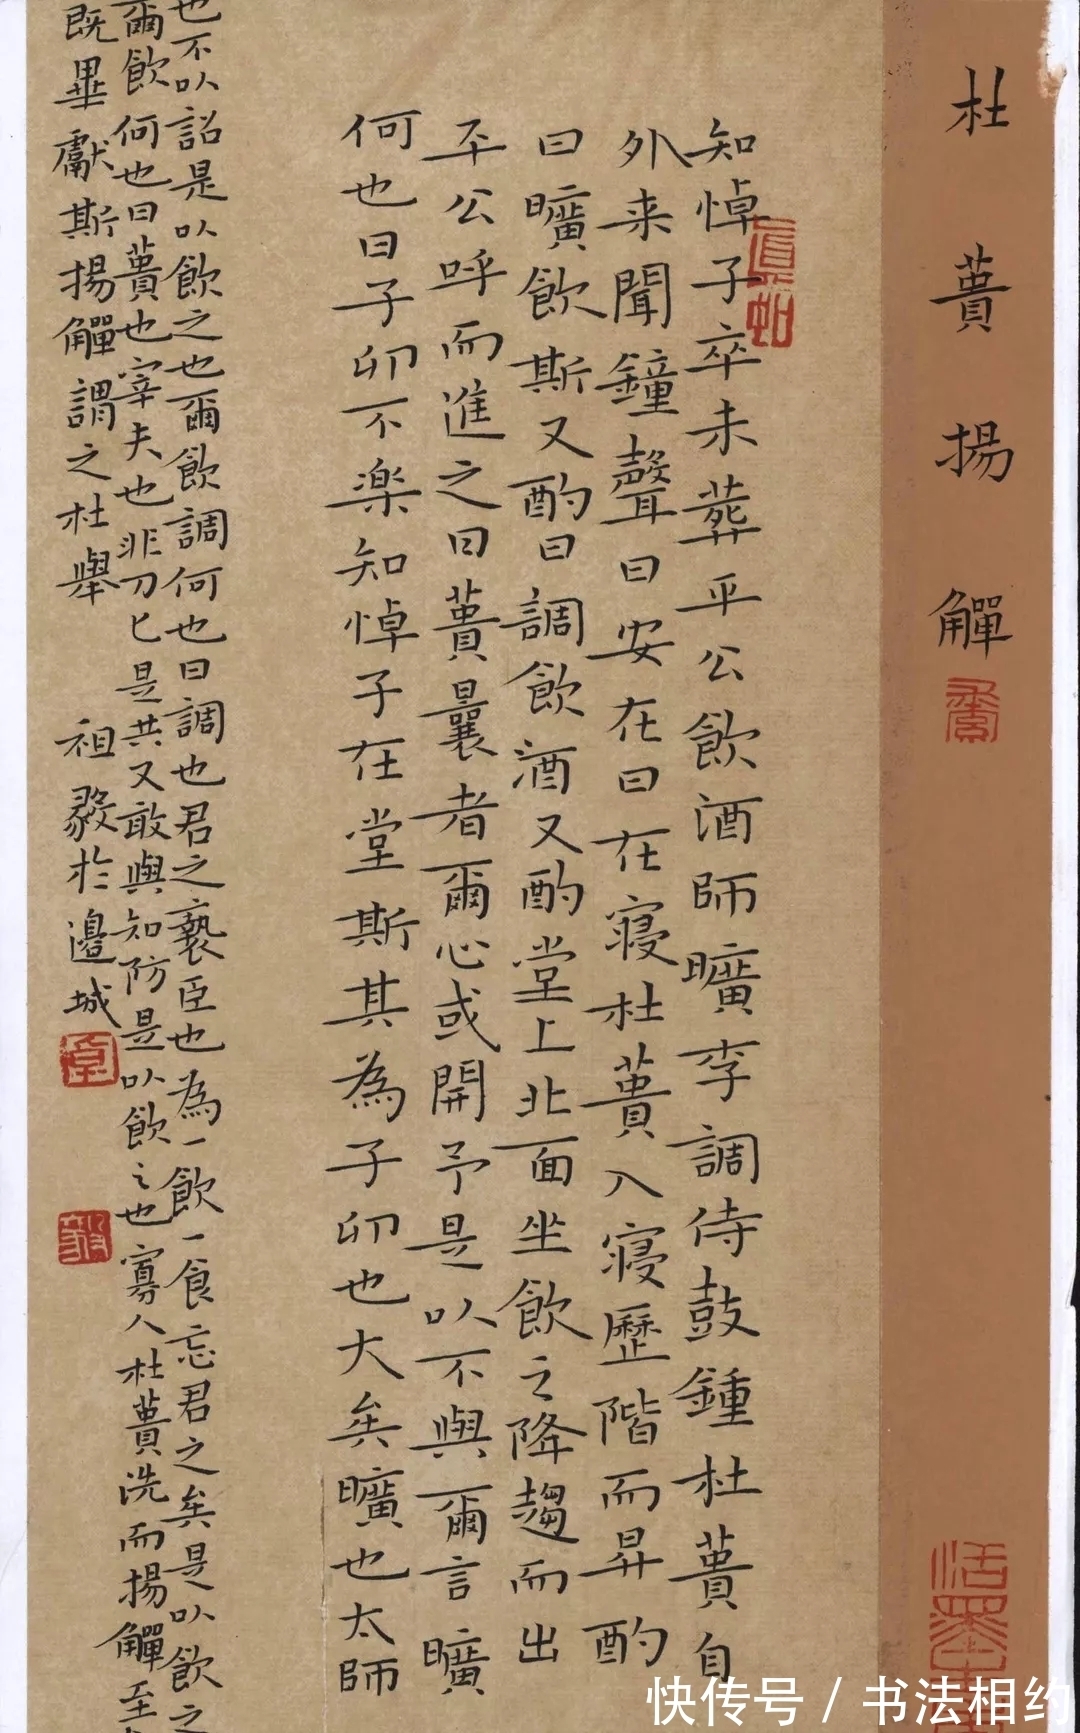 杜蕢揚觶
知悼子卒未葬平公飲酒師曠李調侍鼓鍾杜蕢自
外来聞鐘聲曰安在曰在寢杜蕢入寢歷階而昇酌
曰曠飲斯又酌曰調飲酒又酌堂上北面坐飲之降趨而出
平公呼而進之曰蕢曩者爾心或開予是以不與爾言曠
何也曰子卯不楽知悼子在堂斯其為子卯也大矣曠也太師
也不以詔是以飲之也爾飲調何也曰調也君之褻臣也為一飲一食忘君之矣是以飲之
爾飲何也曰蕢也宰夫也非刀匕是共又敢與知防是以飲之也寡人杜蕢洗而揚觶至
既畢獻斯揚觶謂之杜舉 祖毅於邊城
快传号 / 书法相约